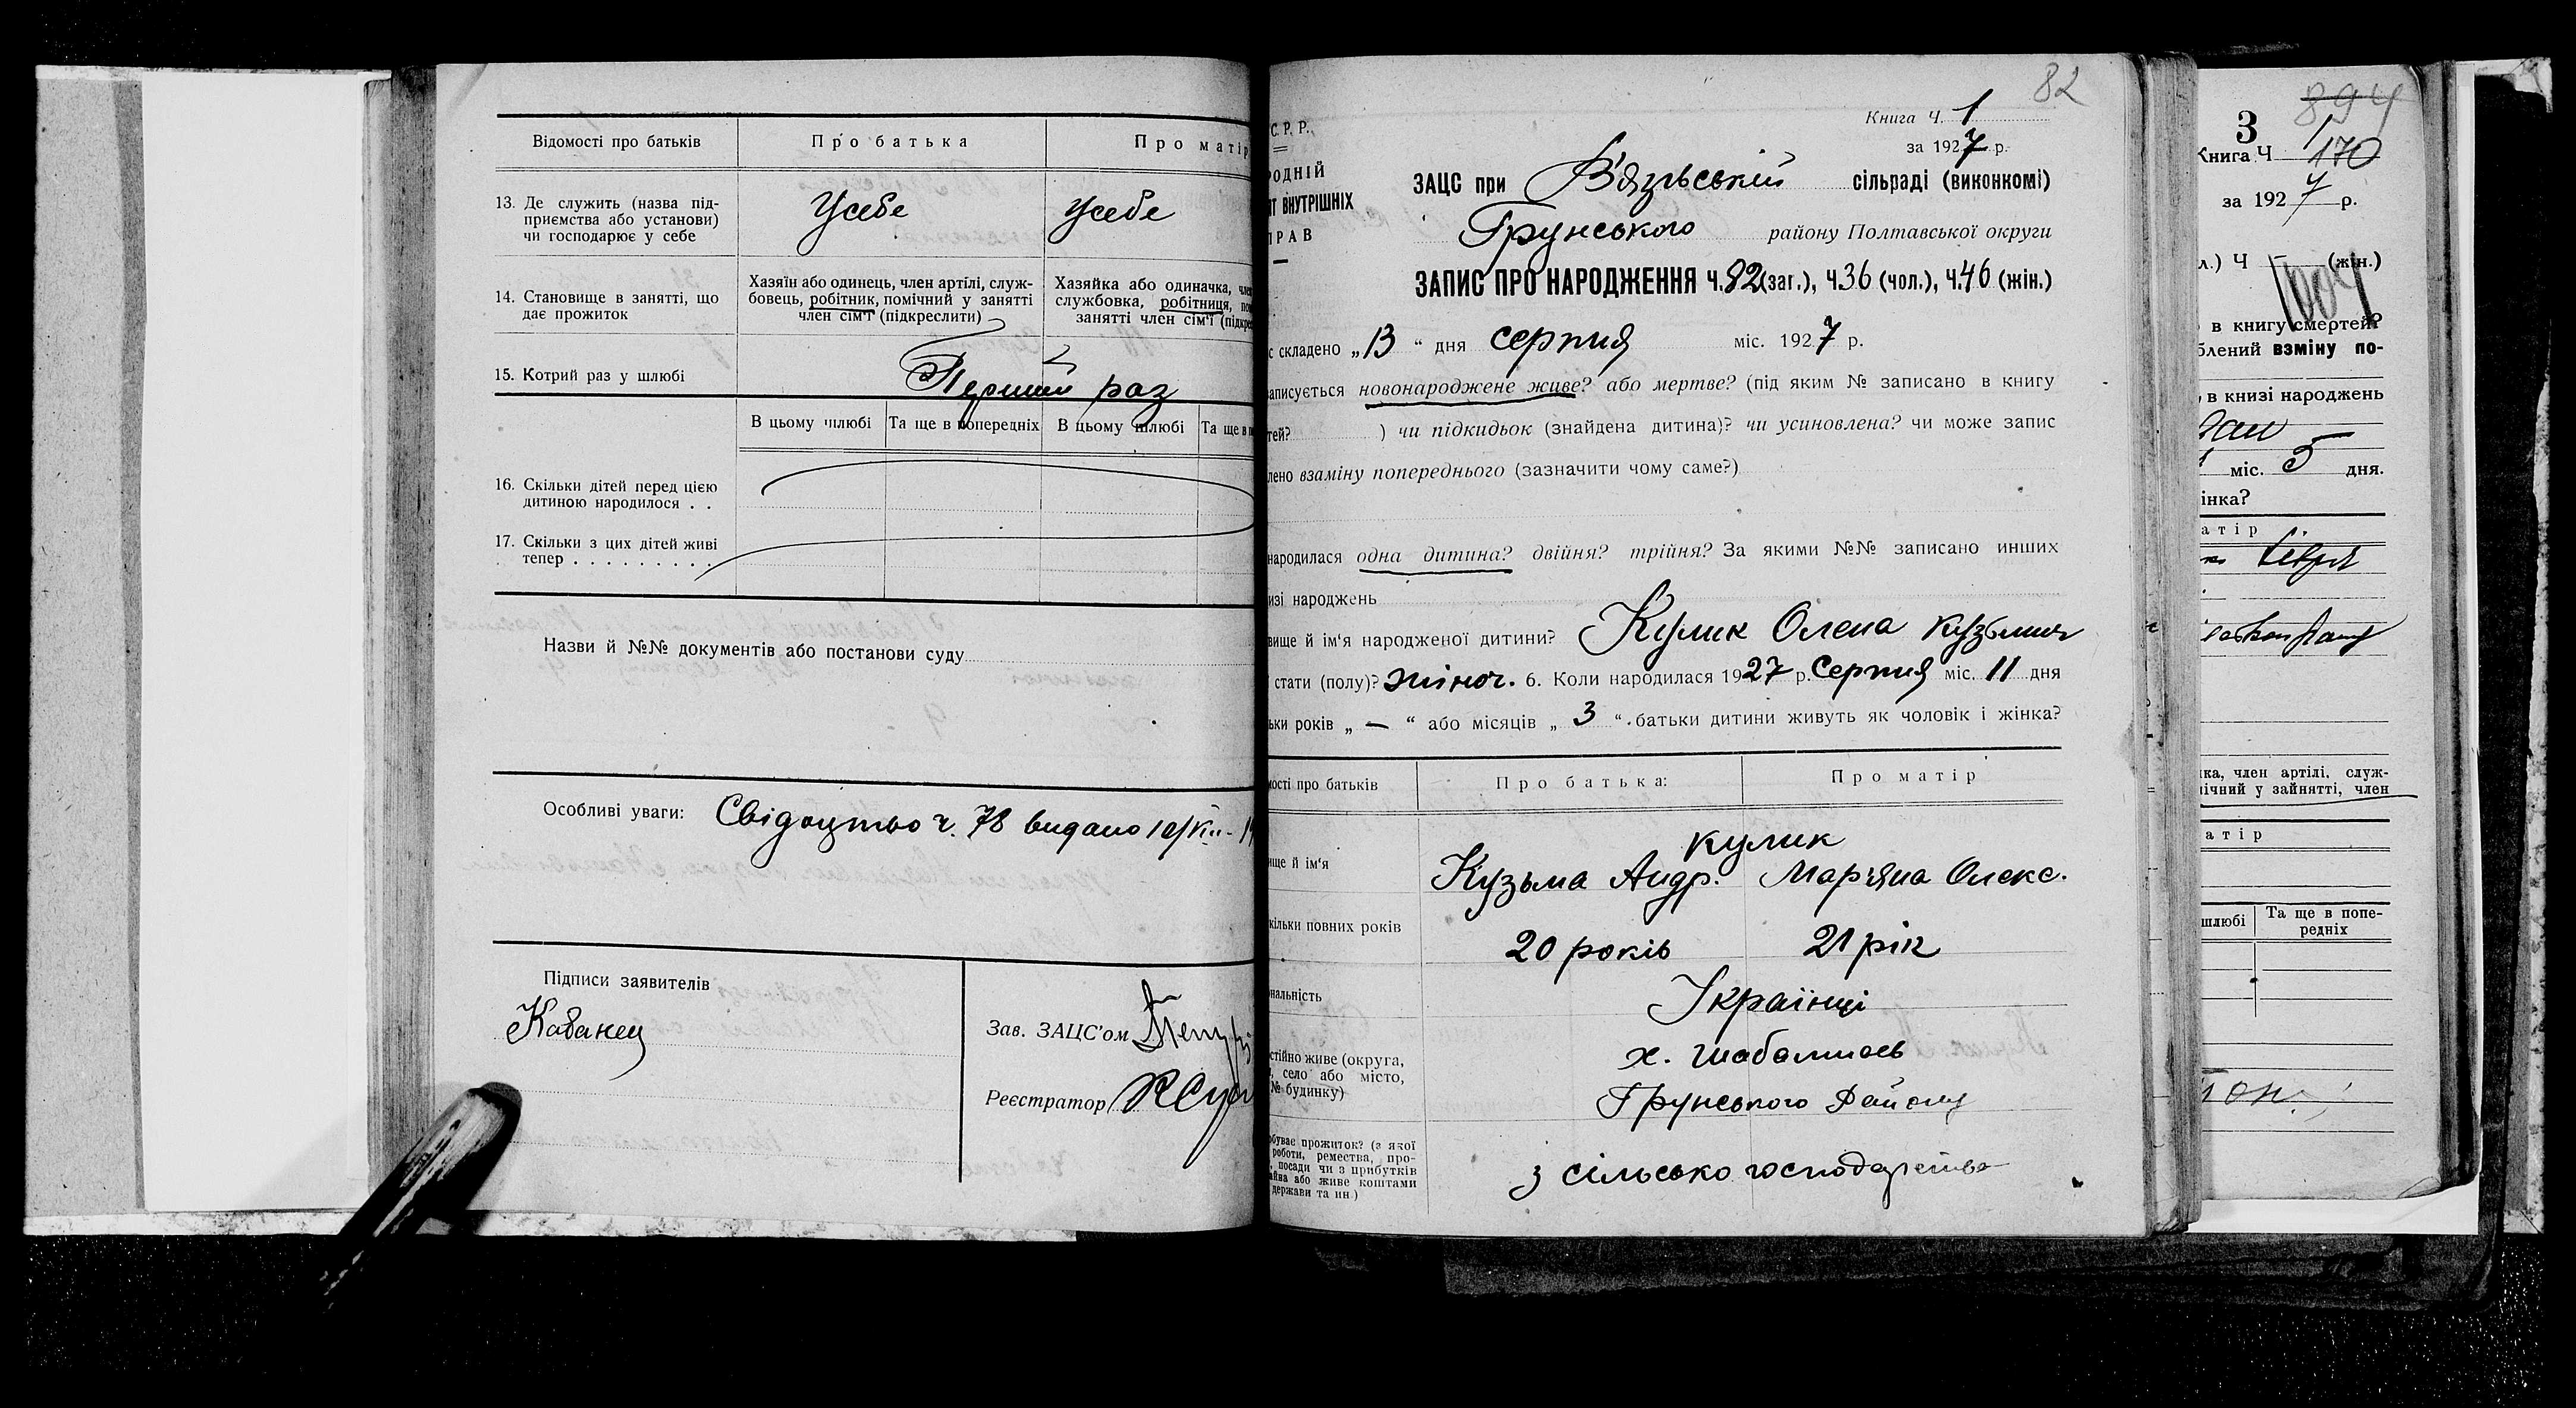 Відомості про батьків
Про батька
Про матір
13. Де служить (назва під-
приємства або установи)
чи господарює у себе
Усебе
Усебе
14. Становище в занятті, що
дає прожиток
Хазяїн або одинець, член артілі, служ-
бовець, робітник, помічний у занятті
член сім'ї (підкреслити)
Хазяйка або одиначка, член
службовка, робітниця, по
занятті член сім'ї (підкре
15. Котрий раз у шлюбі
Перший раз
В цьому шлюбі
Та ще в попередніх
В цьому шлюбі
Та ще в п
16. Скільки дітей перед цією
дитиною народилося . .
17. Скільки з цих дітей живі
тепер . . . . . . . . .
Назви й №№ документів або постанови суду
Особливі уваги: Свідоцтво ч. 78 видано
Підписи заявителів
Зав. ЗАЦС'ом
Реєстратор
82
Книга Ч. 1
за 1927 р.
С. Р. Р.
РОДНІЙ
ВНУТРІШНІХ
ПРАВ
ЗАЦС при В'язівській сільраді (виконкомі)
Грунського району Полтавської округи
ЗАПИС ПРО НАРОДЖЕННЯ Ч. 82 (заг.), Ч. 36 (чол.), Ч. 46 (жін.)
с складено „13“ дня серпня міс. 1927 р.
аписується новонароджене живе? або мертве? (під яким № записано в книгу
тей? ) чи підкидьок (знайдена дитина)? чи усиновлена? чи може запис
лено взаміну попереднього (зазначити чому саме?)
народилася одна дитина? двійня? трійня? За якими №№ записано инших
изі народжень
вище й ім'я народженої дитини? Кулик Олена Кузьмин
стати (полу)? жіноч. 6. Коли народилася 1927 р. Серпня міс. 11 дня
ьки років „—“ або місяців „3“ батьки дитини живуть як чоловік і жінка?
мості про батьків
Про батька:
Про матір
Кулик
ище й ім'я
Кузьма Андр.
Мар'яна Олекс.
кільки повних років
20 років
21 рік
нальність
Українці
стійно живе (округа,
село або місто,
№ будинку)
Грунського Району
буває прожиток? (з якої
роботи, ремества, про-
посади чи з прибутків
айва або живе коштами
держави та ин.)
з сільсько господарства
894
3
Книга Ч 1
170
за 1927 р.
л.) Ч — (жін.)
в книгу смертей?
блений взміну по-
в книзі народжень
міс. 5 дня.
інка?
атір
ка, член артілі, служ-
ічний у зайнятті, член
атір
шлюбі
Та ще в попе-
редніх